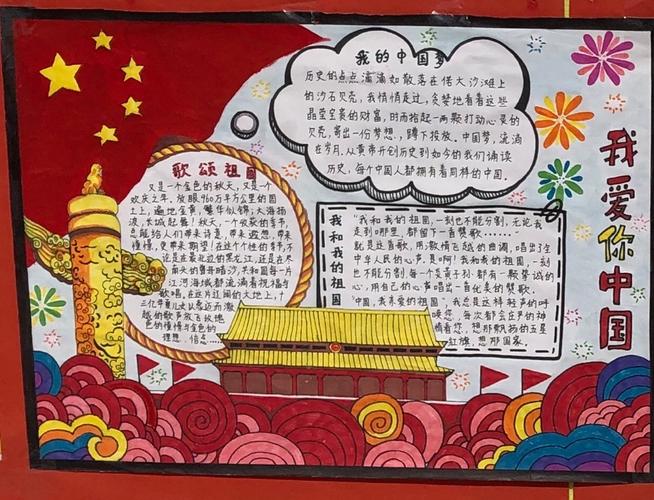 我的中国梦
历史的点点滴滴如散落在偌大沙滩上
的沙石贝壳，我悄悄走过，贪婪地看着这些
晶莹全亮的财富，时而拾起一两颗打动心灵的
贝壳，寄出一份梦想，蹲下投放。中国梦，流淌
在岁月，从黄帝开创历史到如今的我们诵读
历史，每个中国人都拥有着同样的中国。
歌颂祖国
又是一个金色的秋天，又是一个
欢庆之年，放眼960万平方公里的国
土上，遍地金黄，繁华似锦，大海扬
波，长城起舞！秋天，一个收获的季节，
总能给人们带来诗意，带来遐想，带来
憧憬，更带来期望！在这个个性的季节，不
论是在最北边的黑龙江，还是在
南头的曾母暗沙，共和国每一片
江河海域都流淌着祝福与
歌唱，在这片辽阔的大地上，十
三亿华夏儿女从悠远而激
越的歌声放飞玫瑰
色的憧憬与金色的
理想
我和我的祖国
“我和我的祖国，一刻也不能分割，无论我
走到哪里，都留下一首赞歌……”
就是这首歌，用激情飞越的曲调，唱出了全
中华人民的心声。是啊！我和我的祖国，一刻
也不能分割，每一个炎黄子孙都有一颗挚诚的
心，用自己的心声唱出一首优美的赞歌。
“中国，我亲爱的祖国”，我总是这样轻声的呼
唤您，每次都会庄严的神
情看您，想那飘扬的五星
红旗，想那国家。
我爱你中国